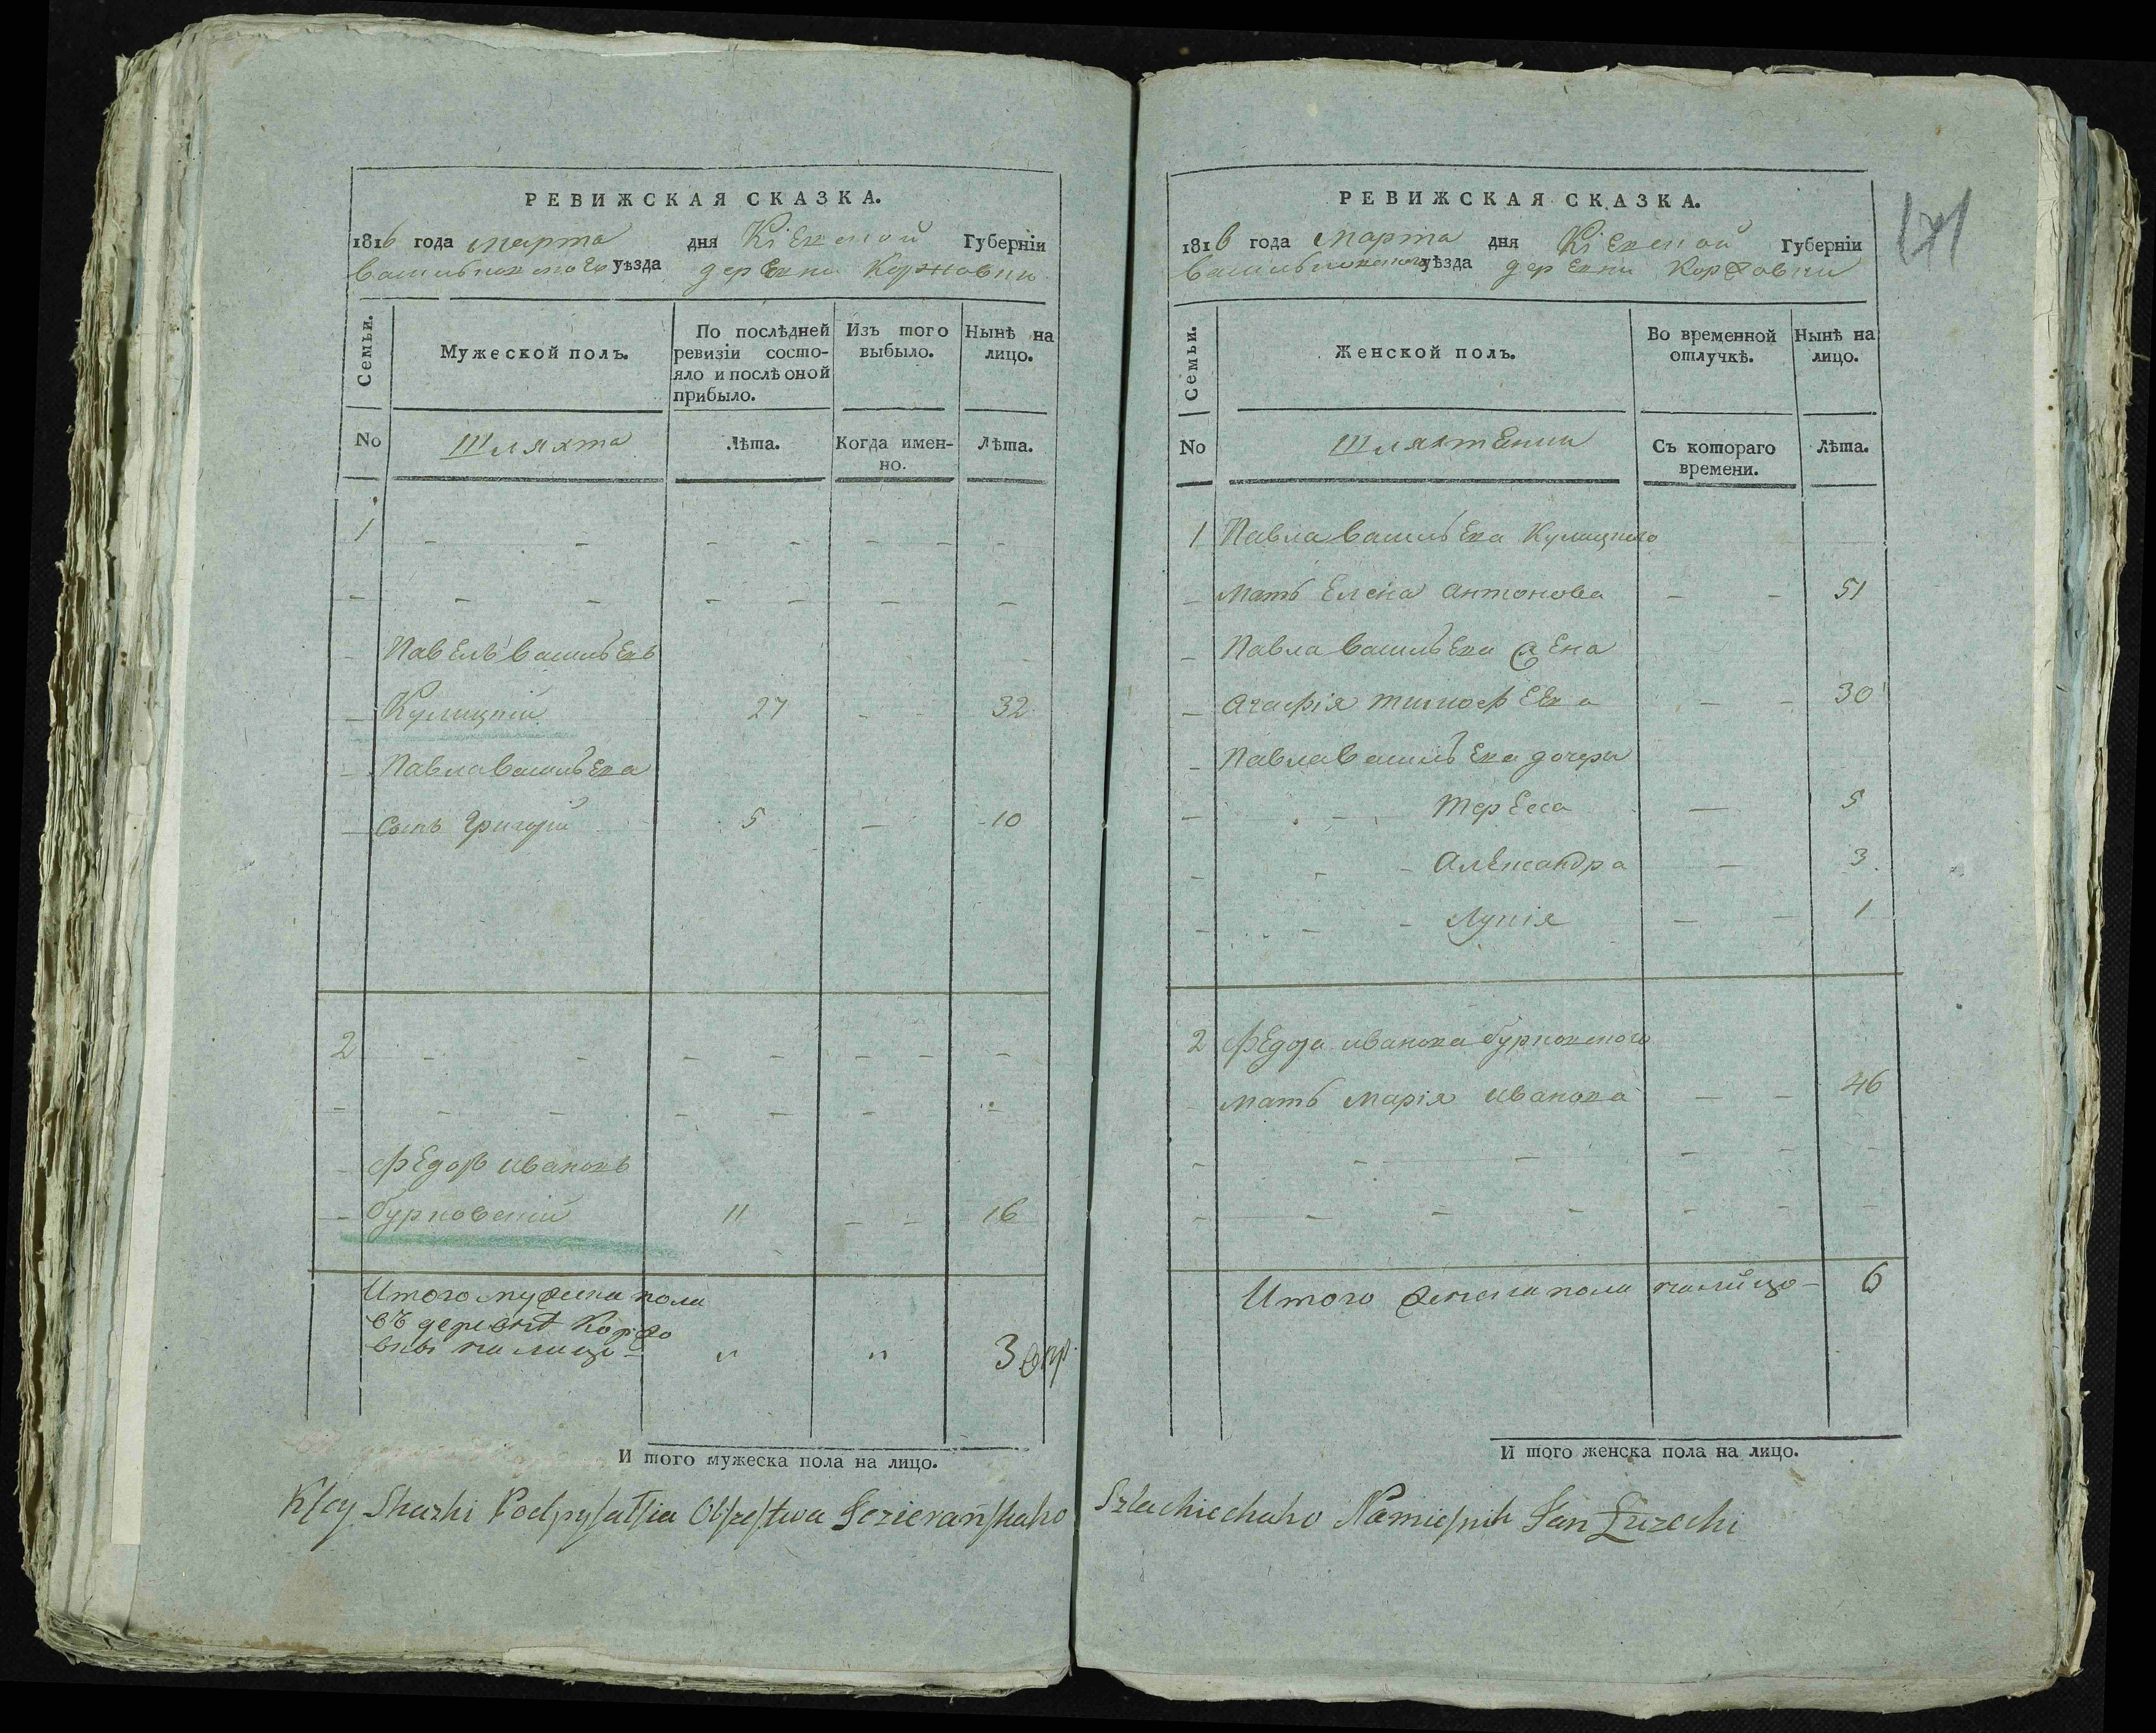 РЕВИЖСКАЯ СКАЗКА.
1816 года марта дня Кіевской Губерніи
Васильковского уѣзда деревни Коржовки
Семьи.
Мужеской полъ.
По послѣдней ревизіи состо-
яло и послѣ оной прибыло.
Изъ того выбыло.
Нынѣ на лицо.
No Шляхта Лѣта. Когда имен-
но. Лѣта.
1 - - - - - - -
- - - - - - -
- Павелъ васильевъ
- Кулицкій 27 - - 32
- Павла васильева
- Сынъ Григорій 5 - 10
2 - - - - - - -
- - - - - - -
- Федоръ ивановъ
- бурковскій 11 - - 16
Итого мужеска пола
въ деревнѣ Коржо
вки на лицо - " " 3
И того мужеска пола на лицо.
РЕВИЖСКАЯ СКАЗКА.
1816 года марта дня Кіевской Губерніи
Васильковского уѣзда деревни Коржовки
Семьи.
Женской полъ.
Во временной отлучкѣ.
Нынѣ на лицо.
No Шляхтенки Съ котораго
времени. Лѣта.
1 Павла васильева Кулицкого
- мать Елена антонова - - 51
- Павла васильева жена
- агафія тимофеева - - 30
- Павла васильева дочери
- - - Тереса - 5
- - - александра - 3
- - - Лукія - - 1
2 Федора иванова бурковского
мать марія иванова - - 46
- - - - - -
- - - - - - -
Итого женска пола на лицо - 6
И того женска пола на лицо.
Kſey Skazki Podpyſalſia Obſzeſtwa Jezierańſkaho Szlachieckaho Namieſnik Jan Łuzecki